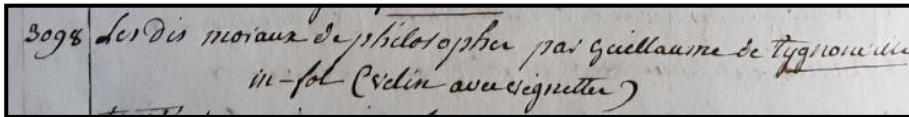 3098 Les Dis moraux de philosophes par Guillaume de Tygnonville
in-fol (velin avec vignettes)